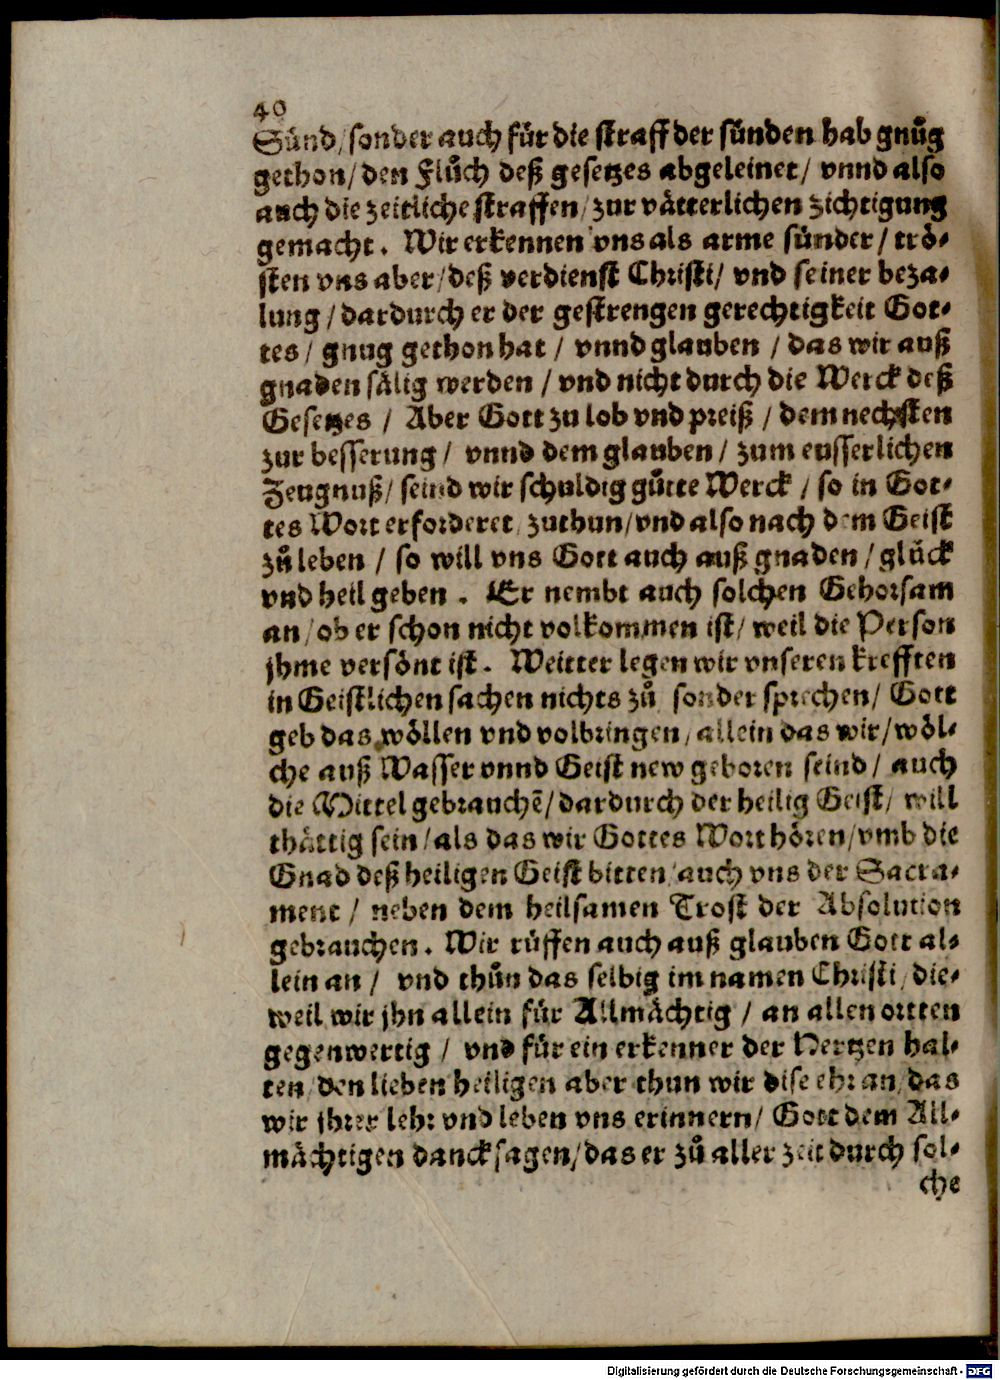 40
Sünd/ sonder auch für die straff der sünden hab gnůg
gethon/ den Flůch deß gesetzes abgeleinet/ vnnd also
auch die zeitliche straffen/ zur vätterlichen zichtigung
gemacht. Wir erkennen vns als arme sünder/ trö-
sten vns aber/ deß verdienst Christi/ vnd seiner beza-
lung/ dardurch er der gestrengen gerechtigkeit Got-
tes/ gnug gethon hat/ vnnd glauben/ das wir auß
gnaden sälig werden/ vnd nicht durch die Werck deß
Gesetzes/ Aber Gott zu lob vnd preiß/ dem nechsten
zur besserung/ vnnd dem glauben/ zum eusserlichen
Zeugnuß/ seind wir schuldig gůtte Werck/ so in Got-
tes Wort erforderet/ zuthun/ vnd also nach dem Geist
zů leben/ so will vns Gott auch auß gnaden/ glück
vnd heil geben. Er nembt auch solchen Gehorsam
an/ ob er schon nicht volkommen ist/ weil die Person
jhme versönt ist. Weitter legen wir vnseren krefften
in Geistlichen sachen nichts zů/ sonder sprechen/ Gott
geb das wöllen vnd volbringen/ allein das wir/ wöl-
che auß Wasser vnnd Geist new geboren seind/ auch
die Mittel gebrauchē/ dardurch der heilig Geist/ will
thättig sein/ als das wir Gottes Wort hören/ vmb die
Gnad deß heiligen Geist bitten/ auch vns der Sacra-
ment/ neben dem heilsamen Trost der Absolution
gebrauchen. Wir rüffen auch auß glauben Gott al-
lein an/ vnd thůn das selbig im namen Christi/ die-
weil wir jhn allein für Allmächtig/ an allen ortten
gegenwertig/ vnd für ein erkenner der Hertzen hal-
ten/ den lieben heiligen aber thun wir dise ehr an/ das
wir jhrer lehr vnd leben vns erinnern/ Gott dem All-
mächtigen dancksagen/ das er zů aller zeit durch sol-
che
Digitalisierung gefördert durch die Deutsche Forschungsgemeinschaft - DFG